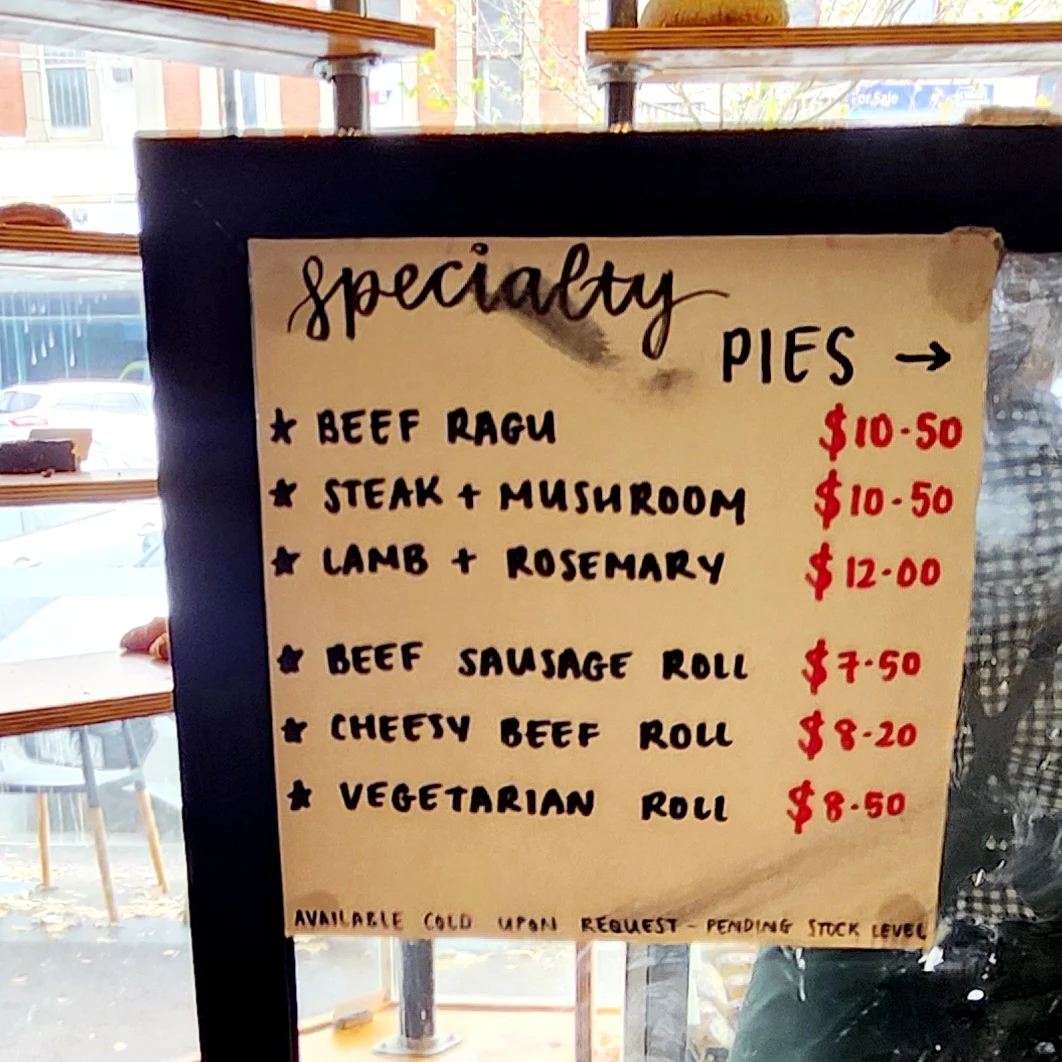 For Sale
Specialty
PIES →
★ BEEF RAGU $10-50
★ STEAK + MUSHROOM $10-50
★ LAMB + ROSEMARY $12-00
★ BEEF SAUSAGE ROLL $7-50
★ CHEESY BEEF ROLL $8-20
★ VEGETARIAN ROLL $8-50
AVAILABLE COLD UPON REQUEST - PENDING STOCK LEVEL